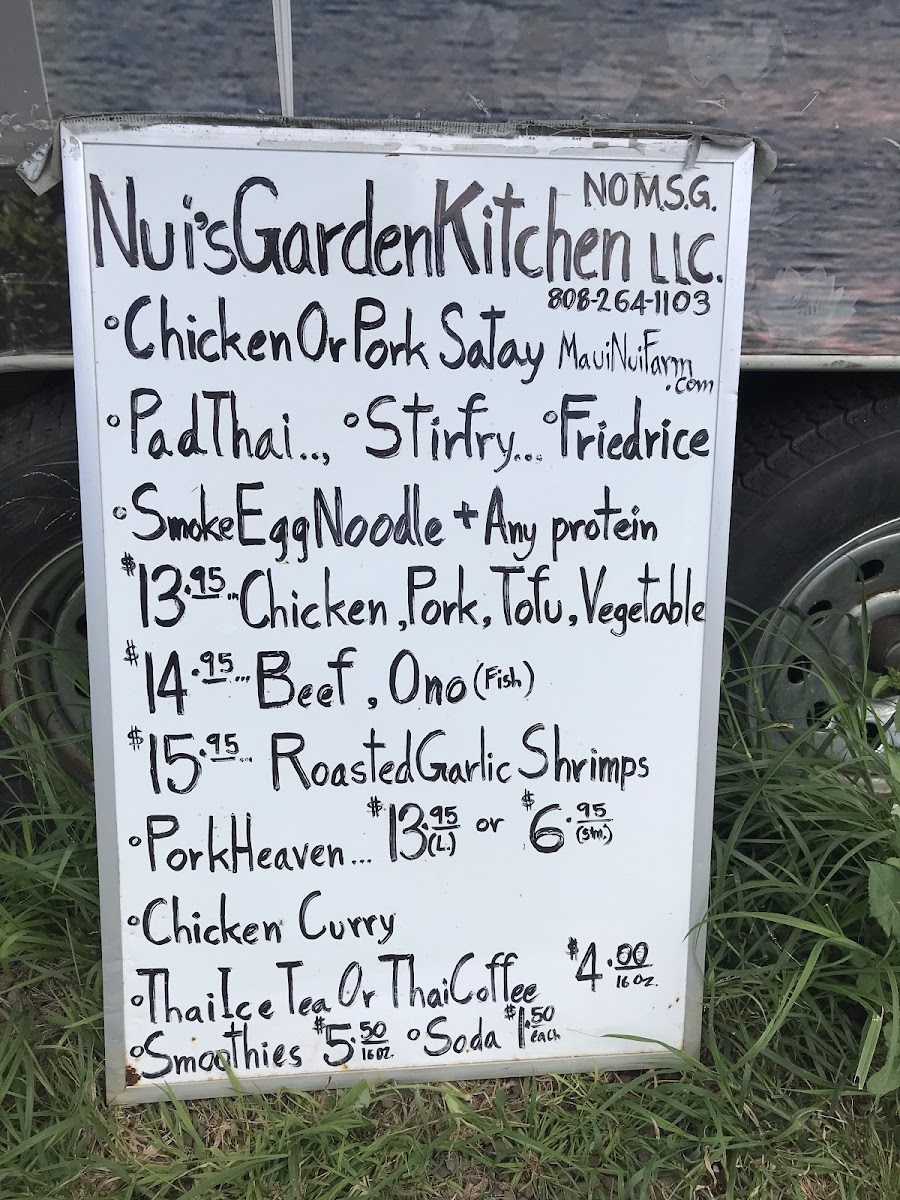 NO M.S.G.
Nui's Garden Kitchen LLC.
808-264-1103
• Chicken Or Pork Satay MauiNuiFarm
.com
• Pad Thai.., • Stirfry... • Friedrice
• Smoke Egg Noodle + Any protein
$13.95... Chicken, Pork, Tofu, Vegetable
$14.95... Beef, Ono (Fish)
$15.95... Roasted Garlic Shrimps
• Pork Heaven... $13.95 (L) or $6.95 (Sm.)
• Chicken Curry
• Thai Ice Tea Or Thai Coffee $4.00 16 oz.
• Smoothies $5.50 16 oz. • Soda $1.50 each